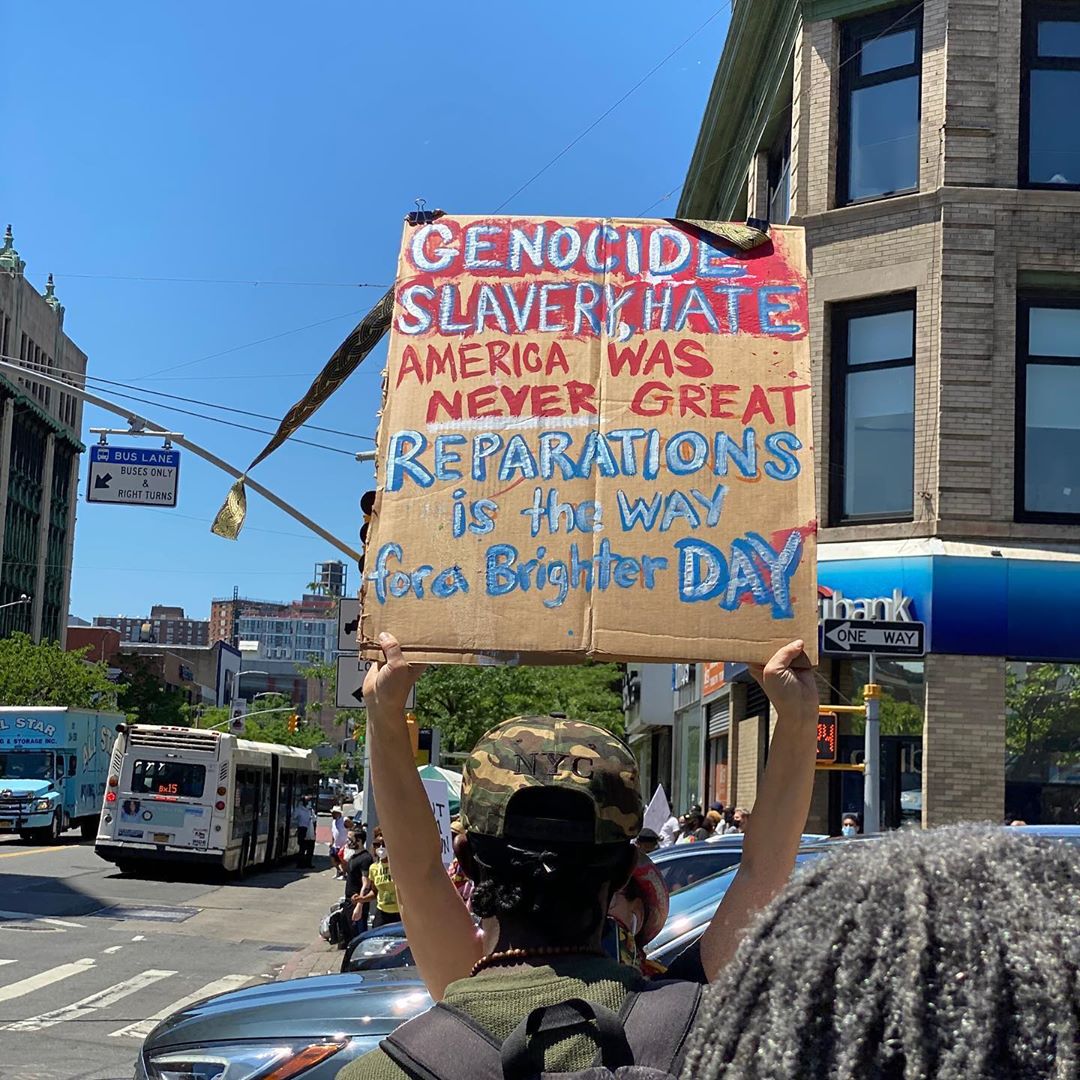 GENOCIDE
SLAVERY, HATE
AMERICA WAS
NEVER GREAT
REPARATIONS
is the WAY
for a Brighter DAY
BUS LANE
BUSES ONLY
&
RIGHT TURNS
bank
ONE WAY
NYC
ALL STAR
& STORAGE INC.
Bx15